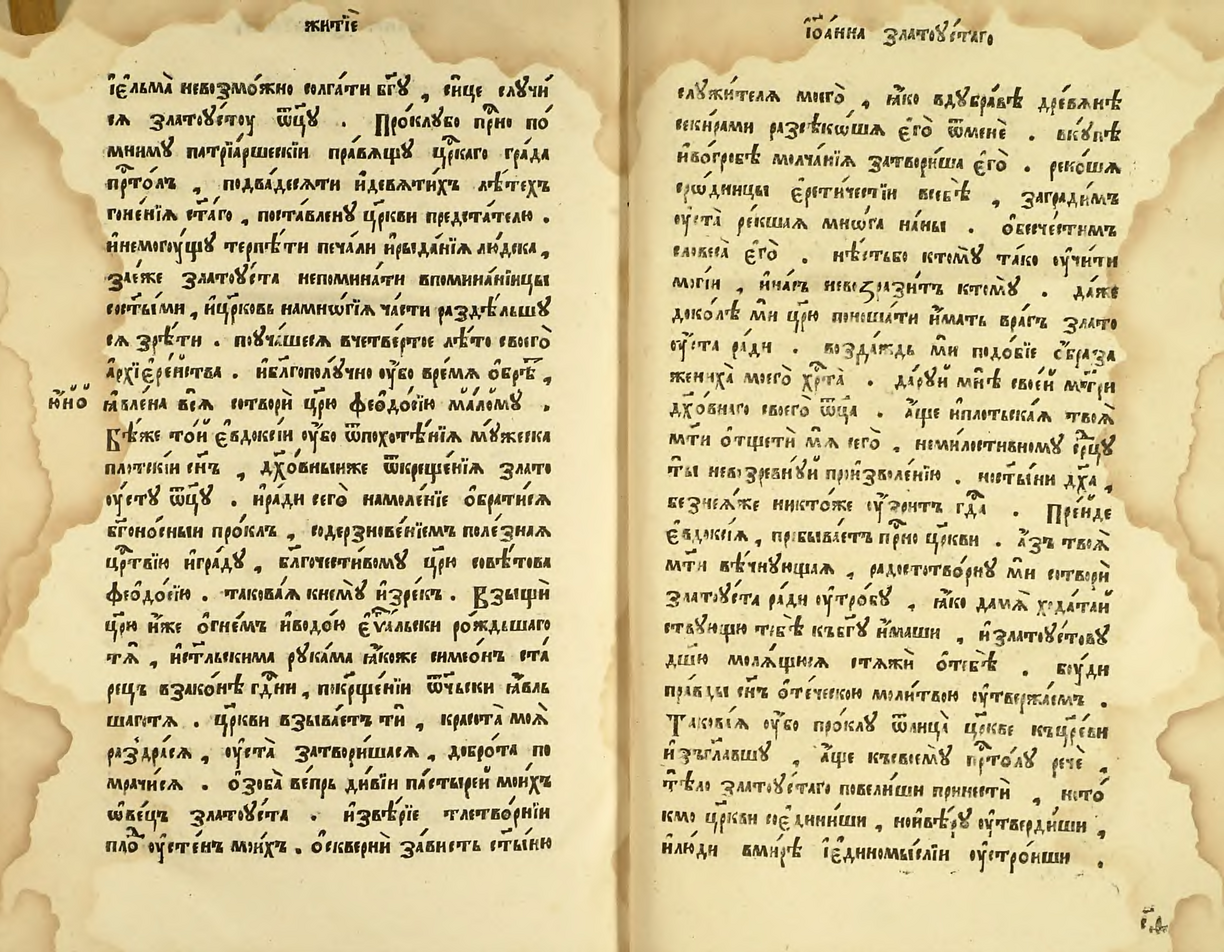 житїѐ
їе҆льма̀ невозмо́жно солга́ти бг҃ꙋ , си́це слꙋчи́
сѧ златоꙋ́стоу ѿцꙋ̀ . Про́клꙋбо при҆но по́
мнимꙋ патрїа́ршескїи пра́вѧщꙋ цр҃каго гра́да
прⷭ҇то́лъ , подва́десѧти и҆девѧ́тихъ лѣ́техъ
гоне́нїѧ ст҃а́го , поста́вленꙋ цр҃кви предста́телю .
и҆немогоу́щꙋ терпѣ́ти печа́ли и҆рыда́нїѧ лю́дска ,
за́еже златоꙋ́ста непомина́ти впомина́нїицы
сост҃ы́ми , и҆цр҃ковь намнѡ́гїѧ ча́сти раздѣ́льшꙋ
сѧ зрѣ́ти . поꙋча́шесѧ вчетве́ртое лѣ́то своего̀
а҆рхїе҆ре́йства . и҆благополу́чно оу҆́бо вре́мѧ ѡ҆брѣ́т ,
ю҆́но
ꙗ҆вле́на всѧ̀ сотворѝ цр҃ю̀ феѻдо́сїю ма́ломꙋ .
Бѣ́же то́й є҆вдоксі́и оу҆́бо ѿпохотѣ́нїѧ мꙋ́жеска
пло́тскїи сн҃ъ , дꙋхо́вныиже ѿкреще́нїѧ злато
оу́стꙋ ѿцꙋ̀ . и҆ра́ди сего̀ намоле́нїе ѡ҆брати́сѧ
бг҃оно́сныи про́клъ , содерзнове́нїемъ поле́знаѧ
црⷭ҇твїю и҆гра́дꙋ , бл҃гочести́вомꙋ цр҃ю̀ совѣ́това
феѻдо́сїю . такова́ѧ кнемꙋ̀ и҆зре́къ . Взыщѝ
цр҃ю̀ и҆́же ѻ҆гне́мъ и҆водо́ю є҆ѵⷢ҇альски ро́ждьшаго
тѧ̀ , и҆ст҃льскима рꙋка́ма ꙗ҆́коже симео́нъ ста́
рецъ взако́нѣ гдⷭ҇ни , покрⷳ҇е́нїи ѿчьски ꙗ҆́вль
шаготѧ . цр҃кви взыва́етъ тѝ , красота̀ моѧ̀
раздра́сѧ , оу҆ста̀ затвори́шасѧ , добро́та по
мрачи́сѧ . ѻ҆зоба̀ ве́прь ди́вїи па́стырей мои́хъ
ѻ҆ве́цъ златоꙋ́ста . и҆звѣ́рїе тлетво́рнїи
пло́т оу҆сте́нъ мои́хъ . ѻ҆сквернѝ за́висть ст҃ы́ню
їѻа́нна златоꙋ́стаго
слꙋжи́телѧ моего̀ , ꙗ҆́ко вдꙋбра́вѣ дре́вѧнѣ
секи́рами разсѣ́коша є҆го̀ ѿменѐ . вкꙋ́пѣ
и҆вогро́бѣ молча́нїѧ затвори́ша є҆го̀ . реко́ша
срѡ́дницы є҆рети́честїи всебѣ̀ , загради́мъ
оу҆ста̀ ре́кшаѧ мнѡ́га на́ны . ѻ҆безче́стимъ
словеса̀ є҆го̀ . нѣ́стьбо ктомꙋ̀ та́ко оу҆чи́ти
моги́и , и҆на́съ невозрази́тъ ктомꙋ̀ . да́же
доко́лѣ мѝ цр҃ю̀ поноша́ти и҆́мать вра́гъ злато
оу҆ста ра́ди . возда́ждь мѝ подо́бїе ѻ҆́браза
жениха̀ моего̀ хрⷭ҇та̀ . да́рꙋй мнѣ̀ свое́й мт҃ри
дх҃о́внаго своего̀ ѿца̀ . а҆́ще и҆пло́тьскаѧ твоѧ̀
мт҃и ѻ҆тщетѝ мѧ̀ сего̀ , неми́лостивномꙋ срⷣцꙋ
ты̀ невозревнꙋ́й произволе́нїю . ност҃ы́ни дх҃а ,
безнеѧ́же никто́же оу҆́зритъ гдⷭ҇а . Пре́йде
є҆вдоксі́ѧ , пребыва́етъ прⷭ҇но цр҃кви . а҆́зъ твоѧ̀
мт҃и вѣ́чнꙋющаѧ , радостотво́рнꙋ мѝ сотворѝ
златоꙋ́ста ра́ди оу҆тро́бꙋ , ꙗ҆́ко дамѧ̀ хода́таи
ствꙋющꙋ тебѣ̀ къбг҃ꙋ и҆́маши , и҆златоꙋ́стовꙋ
дш҃ꙋ молѧ́щꙋсѧ стѧжѝ ѻ҆тебѣ̀ . бꙋ́ди
пра́вды сн҃ъ ѻ҆те́ческою моли́твою оу҆твержа́емъ .
Такова́ѧ оу҆́бо про́клꙋ ѿлица̀ цр҃кве къцр҃еви
и҆зъгл҃авшꙋ , а҆́ще късвоемꙋ̀ прⷭ҇то́лꙋ речѐ ,
тѣ́ло златоꙋ́стаго повели́ши принестѝ , нето́
кмо цр҃кви соедини́ши , но́ивѣ́рꙋ оу҆тверди́ши ,
и҆лю́ди вми́рѣ і҆единомы́слїи оу҆стро́иши .